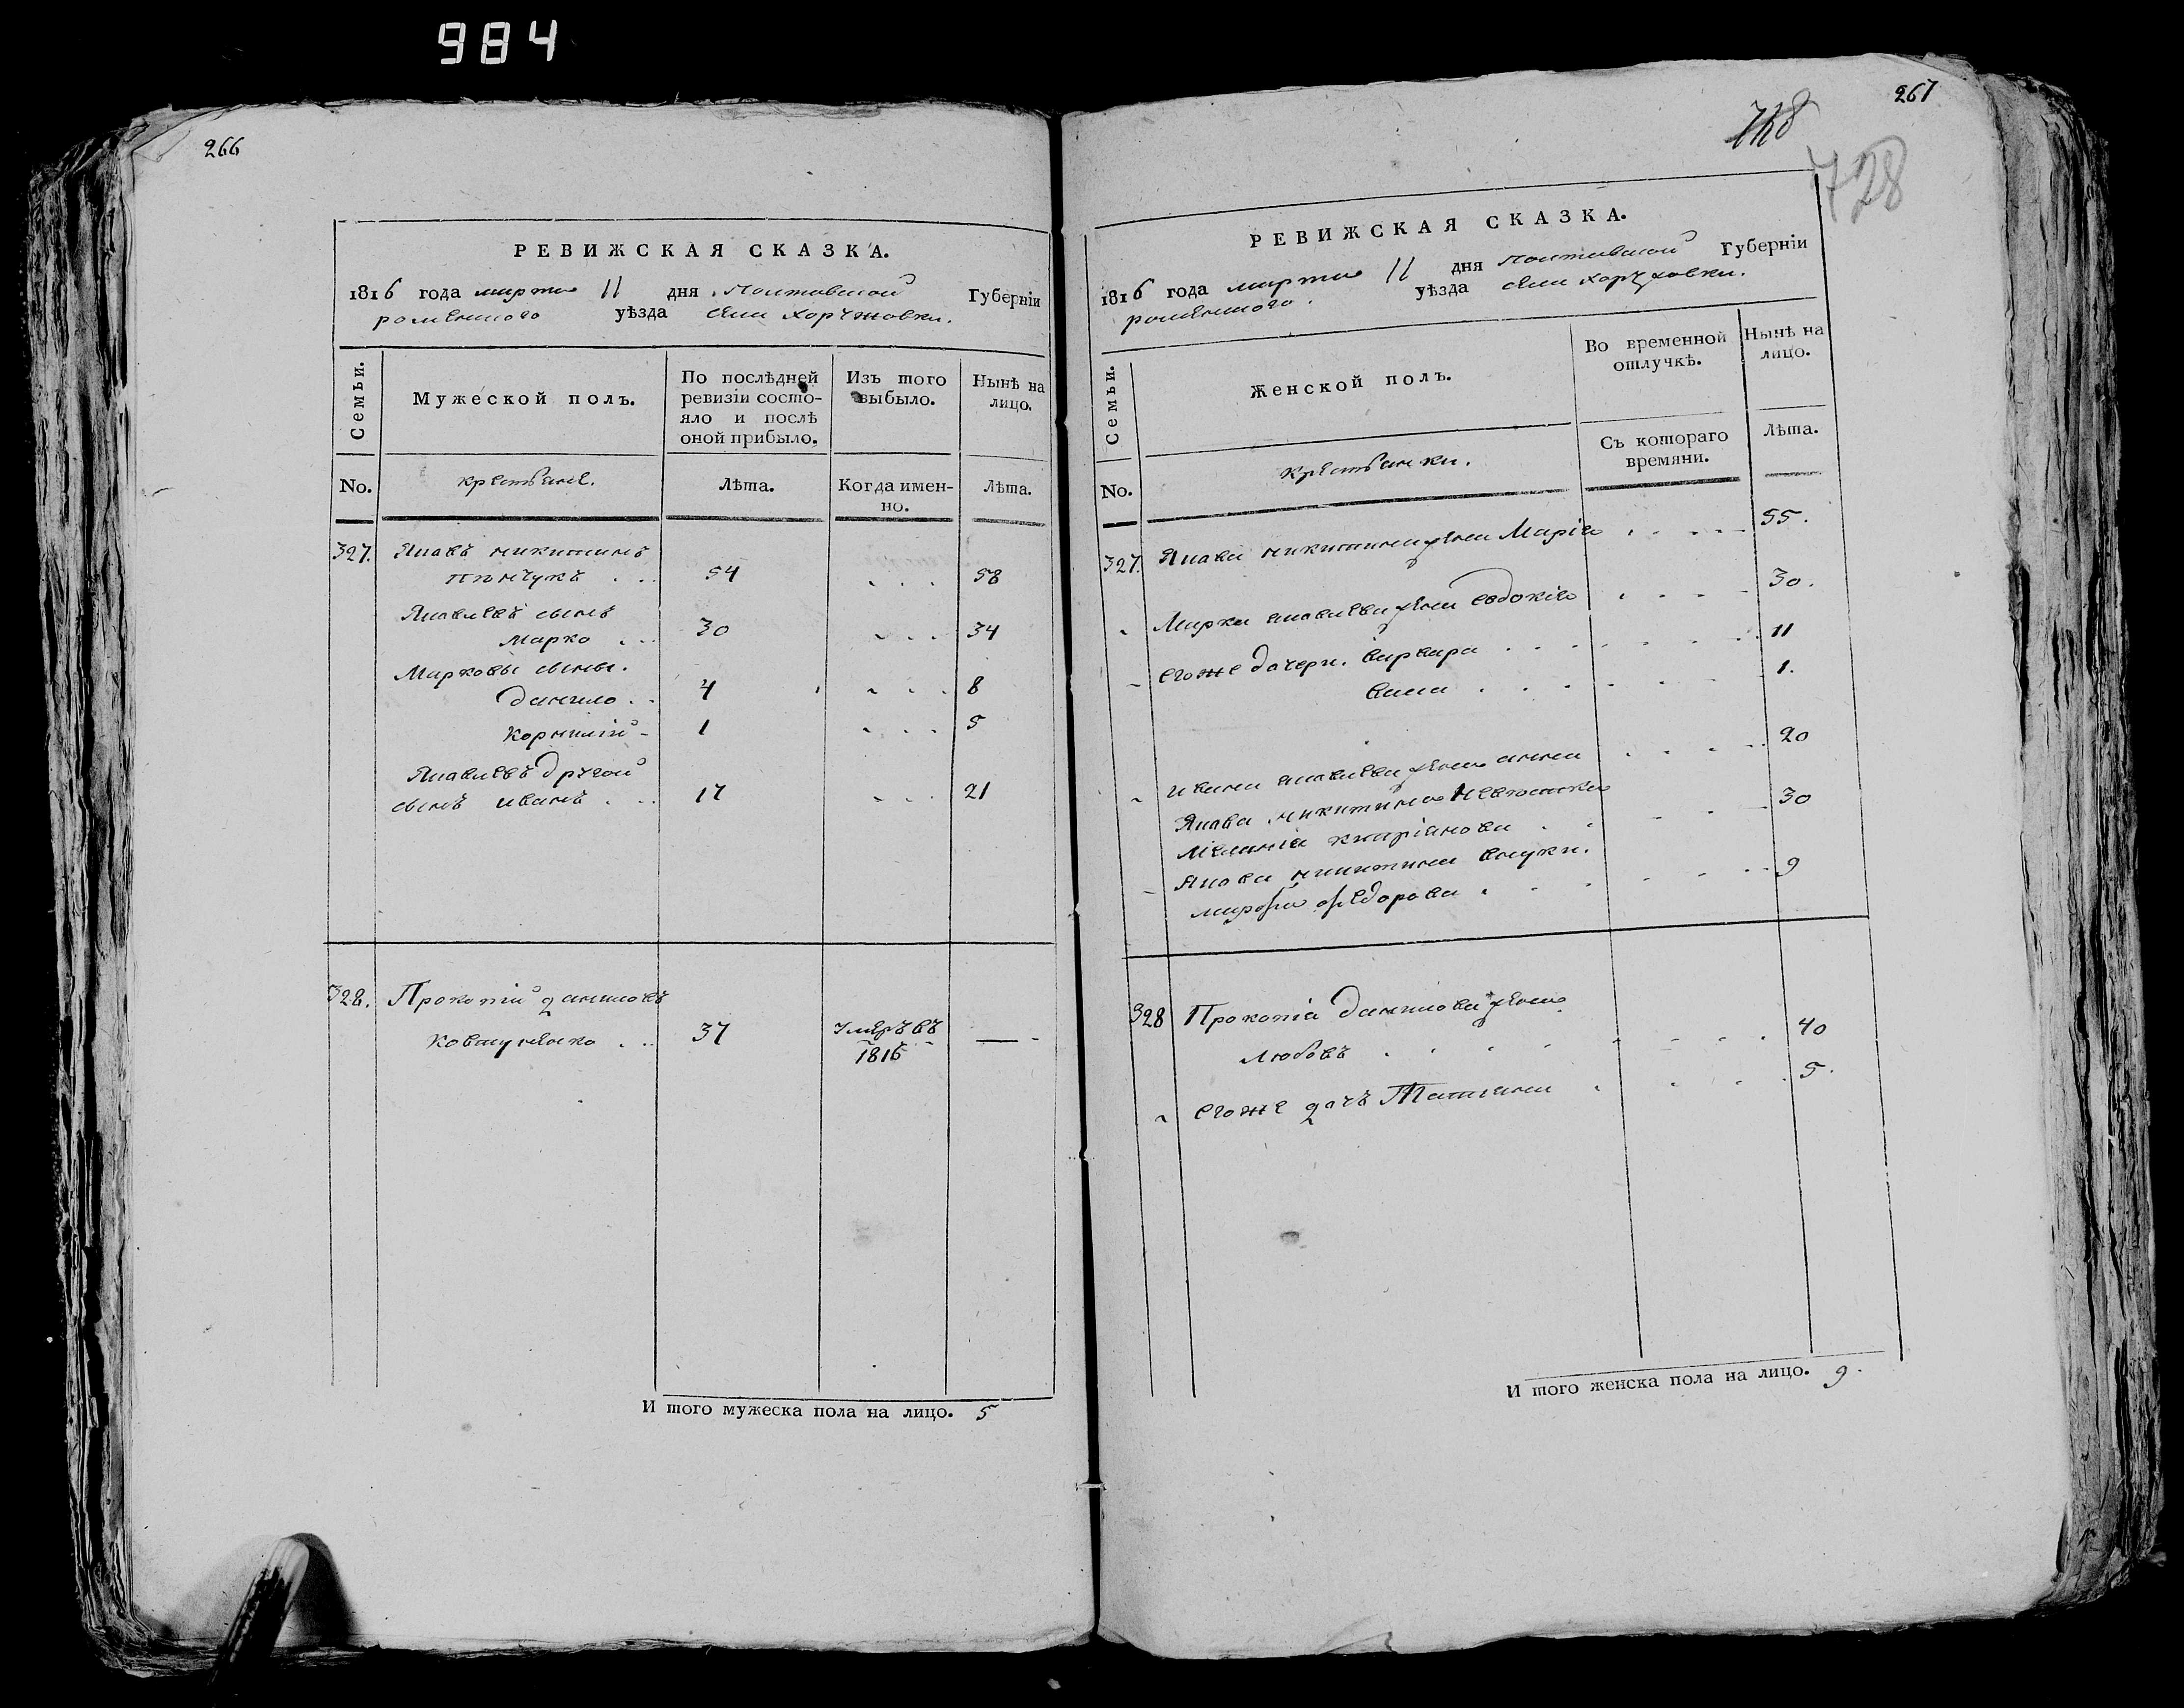 984
266
РЕВИЖСКАЯ СКАЗКА.
1816 года марта 11 дня Полтавской Губерніи
роменского уѣзда села Хоружовки.
Семьи.
Мужеской полъ.
По послѣдней ревизіи состояло и послѣ оной прибыло.
Изъ того выбыло.
Нынѣ на лицо.
No.
крестьяне.
Лѣта.
Когда именно.
Лѣта.
327. Яковъ никитинъ
54 . . . 58
Яковлевъ сынъ
Марко . . 30 . . . 34
Марковы сыны.
данило . . 4 . . . 8
корнилій - 1 . . . 5
Яковлевъ другой
сынъ иванъ . . 17 . . . 21
328. Прокопій даниловъ
37 умеръ въ 1816 —
И того мужеска пола на лицо. 5
267
728
728
РЕВИЖСКАЯ СКАЗКА.
1816 года марта 11 дня полтавской Губерніи
роменского уѣзда села Хоружовки.
Семьи.
Женской полъ.
Во временной отлучкѣ.
Нынѣ на лицо.
No.
крестьянки.
Съ котораго времяни.
Лѣта.
327. Якова никитина жена Марія . . . . 55.
Марка яковлева жена евдокія . . . . 30.
егоже дочери. варвара . . . . 11
анна . . . . 1.
ивана яковлева жена анна . . . . 20
Якова никитина невѣстка
30
Якова никитина внуки.
марфа федорова . . . . 9
328 Прокопіа данилова жена
любовъ . . . . 40
егоже дочь Татіана . . . . 5.
И того женска пола на лицо. 9.